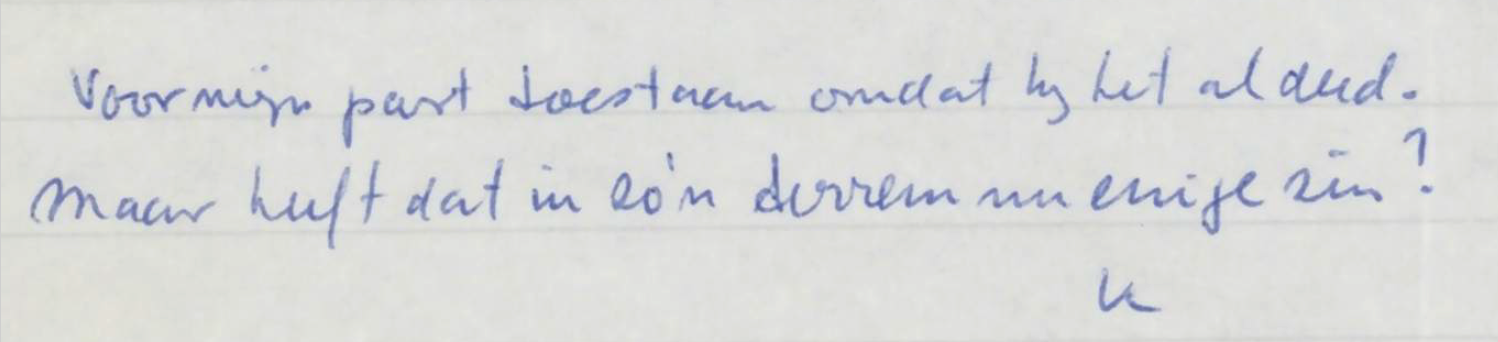 Voor mijn part toestaan omdat hij het al deed.
Maar heeft dat in zo'n terrein nu enige zin?
K